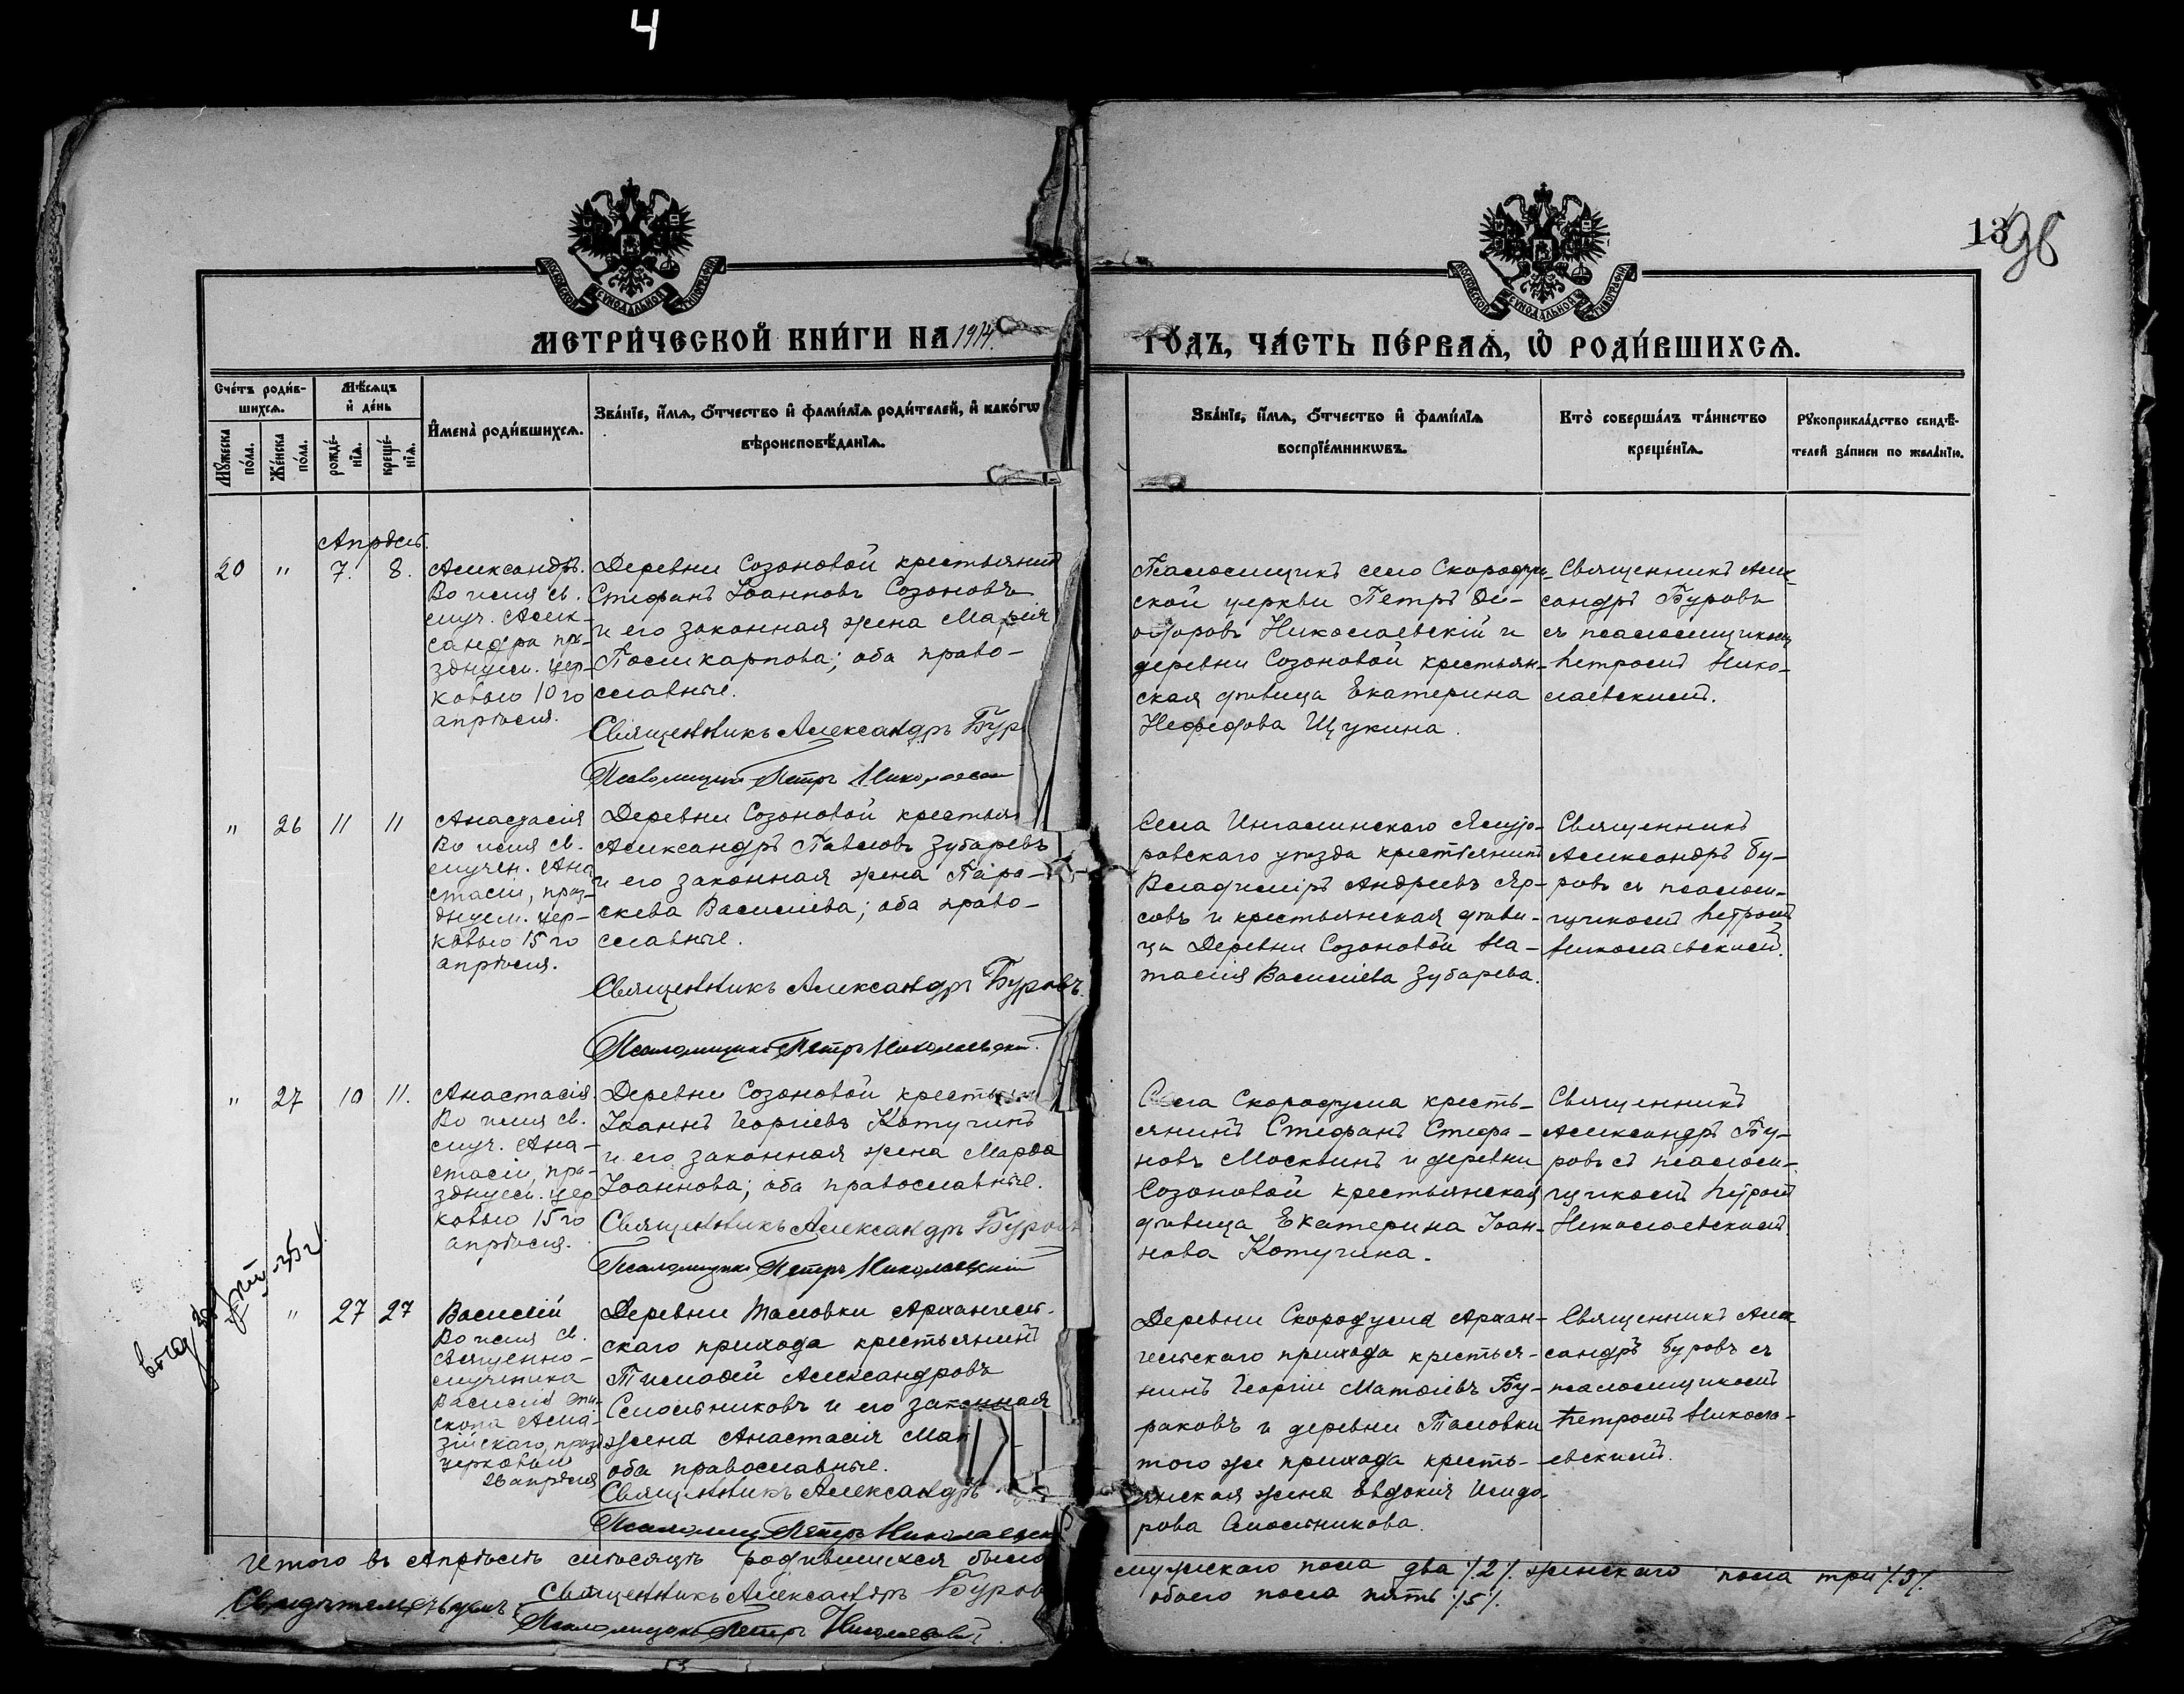 4
13
98
МОСКОВСКОЙ СѴНОДАЛЬНОЙ ТИПОГРАФІИ
МОСКОВСКОЙ СѴНОДАЛЬНОЙ ТИПОГРАФІИ
МЕТРИ́ЧЕСКОЙ КНИ́ГИ НА 1914.
ГО́ДЪ, ЧА́СТЬ ПЕ́РВАѦ, Ѡ҆ РОДИ́ВШИХСѦ.
Сче́тъ роди́в-
шихсѧ.
Мѣ́сѧцъ
и҆ де́нь
Мꙋ́жеска
по́ла.
Же́нска
по́ла.
рожде́-
нїѧ.
креще́-
нїѧ.
И҆мена̀ роди́вшихсѧ.
Зва́нїе, и҆́мѧ, ѻ҆́тчество и҆ фами́лїѧ роди́телей, и҆ како́гѡ
вѣроисповѣ́данїѧ.
Зва́нїе, и҆́мѧ, ѻ҆́тчество и҆ фами́лїѧ
воспрїе́мникѡвъ.
Кто̀ соверша́лъ та́инство
креще́нїѧ.
Рꙋкоприкла́дство свидѣ́-
телей за́писи по жела́нїю.
Апрѣль.
20 " 7. 8.
Александръ.
Во имя св.
муч. Алек-
сандра пра-
зднуем. цер-
ковью 10 го
апрѣля.
Деревни Созоновой крестьянинъ
Стефанъ Іоанновъ Созоновъ
и его законная жена Марія
Поликарпова; оба право-
славные.
Священникъ Александръ Бур
Псаломщикъ Петръ Николаевскій
Псаломщикъ села Скородум-
ской церкви Петръ Ѳе-
одоровъ Николаевскій и
деревни Созоновой крестьян-
ская дѣвица Екатерина
Нефедова Щукина.
Священникъ Алек-
сандръ Буровъ
съ псаломщикомъ
Петромъ Нико-
лаевскимъ.
" 26 11 11
Анастасія
Во имя св.
мучен. Ана-
стасіи, праз-
днуем. цер-
ковью 15 го
апрѣля.
Деревни Созоновой крестьян
Александръ Павловъ Зубаревъ
и его законная жена Пара-
скева Василіева; оба право-
славные.
Священникъ Александръ Буровъ.
Псаломщикъ Петръ Николаевскій.
Села Ингалинскаго Ялуто-
ровскаго уѣзда крестьянинъ
Владиміръ Андреевъ
и крестьянская дѣви-
ца Деревни Созоновой На-
талія Василіева Зубарева.
Священникъ
Александръ Бу-
ровъ съ псалом-
щикомъ Петромъ
Николаевскимъ.
" 27 10 11.
Анастасія.
Во имя св.
муч. Ана-
стасіи, пра-
зднуем. цер-
ковью 15 го
апрѣля.
Деревни Созоновой крестьянинъ
Іоаннъ Георгіевъ Котугинъ
и его законная жена Марѳа
Іоаннова; оба православные.
Священникъ Александръ Буровъ
Псаломщикъ Петръ Николаевскій
Села Скородума кресть-
янинъ Стефанъ Стефа-
новъ Москвинъ и деревни
Созоновой крестьянская
дѣвица Екатерина Іоан-
нова Котугина.
Священникъ
Александръ Бу-
ровъ съ псалом-
щикомъ Петромъ
Николаевскимъ
" 27 27
Василій
Во имя св.
священно-
мученика
Василія епи-
скопа Ама-
зійскаго, празд
церковью
26 апрѣля
Деревни Таловки Архангель-
скаго прихода крестьянинъ
Тимоѳей Александровъ
Смольниковъ и его законная
жена Анастасія Мат
оба православные.
Священникъ Александръ
Псаломщ Петръ Николаевск
Деревни Скородума Архан-
гельскаго прихода крестья-
нинъ Георгій Матѳіевъ Бу-
раковъ и деревни Таловки
того же прихода кресть-
янская жена Евдокія Исидо-
рова Смольникова.
Священникъ Алек
сандръ Буровъ съ
псаломщикомъ
Петромъ Никола-
евскимъ.
Итого въ Апрѣлѣ мѣсяцѣ родившихся было
мужескаго пола два ٪2٪ женскаго пола три ٪3٪.
обоего пола пять ٪5٪.
Свидѣтельствуемъ: Священникъ Александръ Буров
Псаломщикъ Петръ Николаевскій